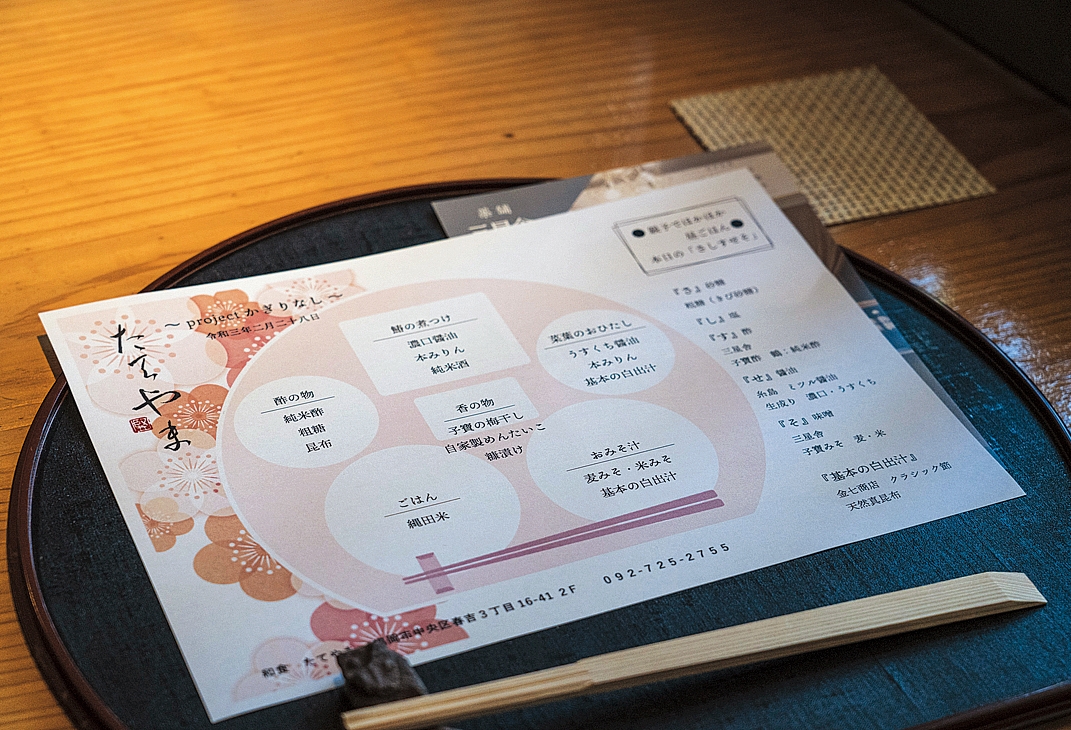 たてやま
〜 project かぎりなし 〜
令和三年二月二十八日
酢の物
純米酢
粗糖
昆布
鰆の煮つけ
濃口醤油
本みりん
純米酒
菜葉のおひたし
うすくち醤油
本みりん
基本の白出汁
香の物
子寶の梅干し
自家製めんたいこ
糠漬け
ごはん
縄田米
おみそ汁
麦みそ・米みそ
基本の白出汁
親子でぽかぽか
昼ごはん
本日の「さしすせそ」
『さ』砂糖
粗糖（きび砂糖）
『し』塩
『す』酢
三星舎
子寶酢 鶴：純米酢
『せ』醤油
糸島 ミツル醤油
生成り 濃口・うすくち
『そ』味噌
三星舎
子寶みそ 麦・米
『基本の白出汁』
金七商店 クラシック節
天然真昆布
和食 たてや 福岡市中央区春吉3丁目16-41 2F 092-725-2755